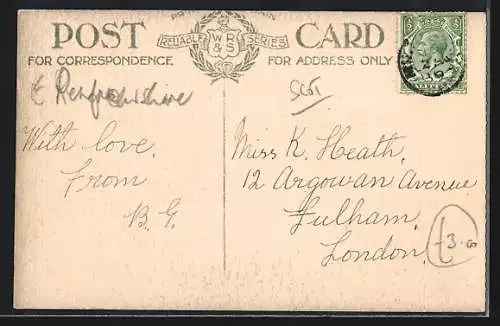 POST CARD
RELIABLE WR&S SERIES
FOR CORRESPONDENCE FOR ADDRESS ONLY
E Renfrewshire
SC51
With love.
From
B. G.
Miss K. Heath,
12 Argowan Avenue
Fulham,
London.
£3.00